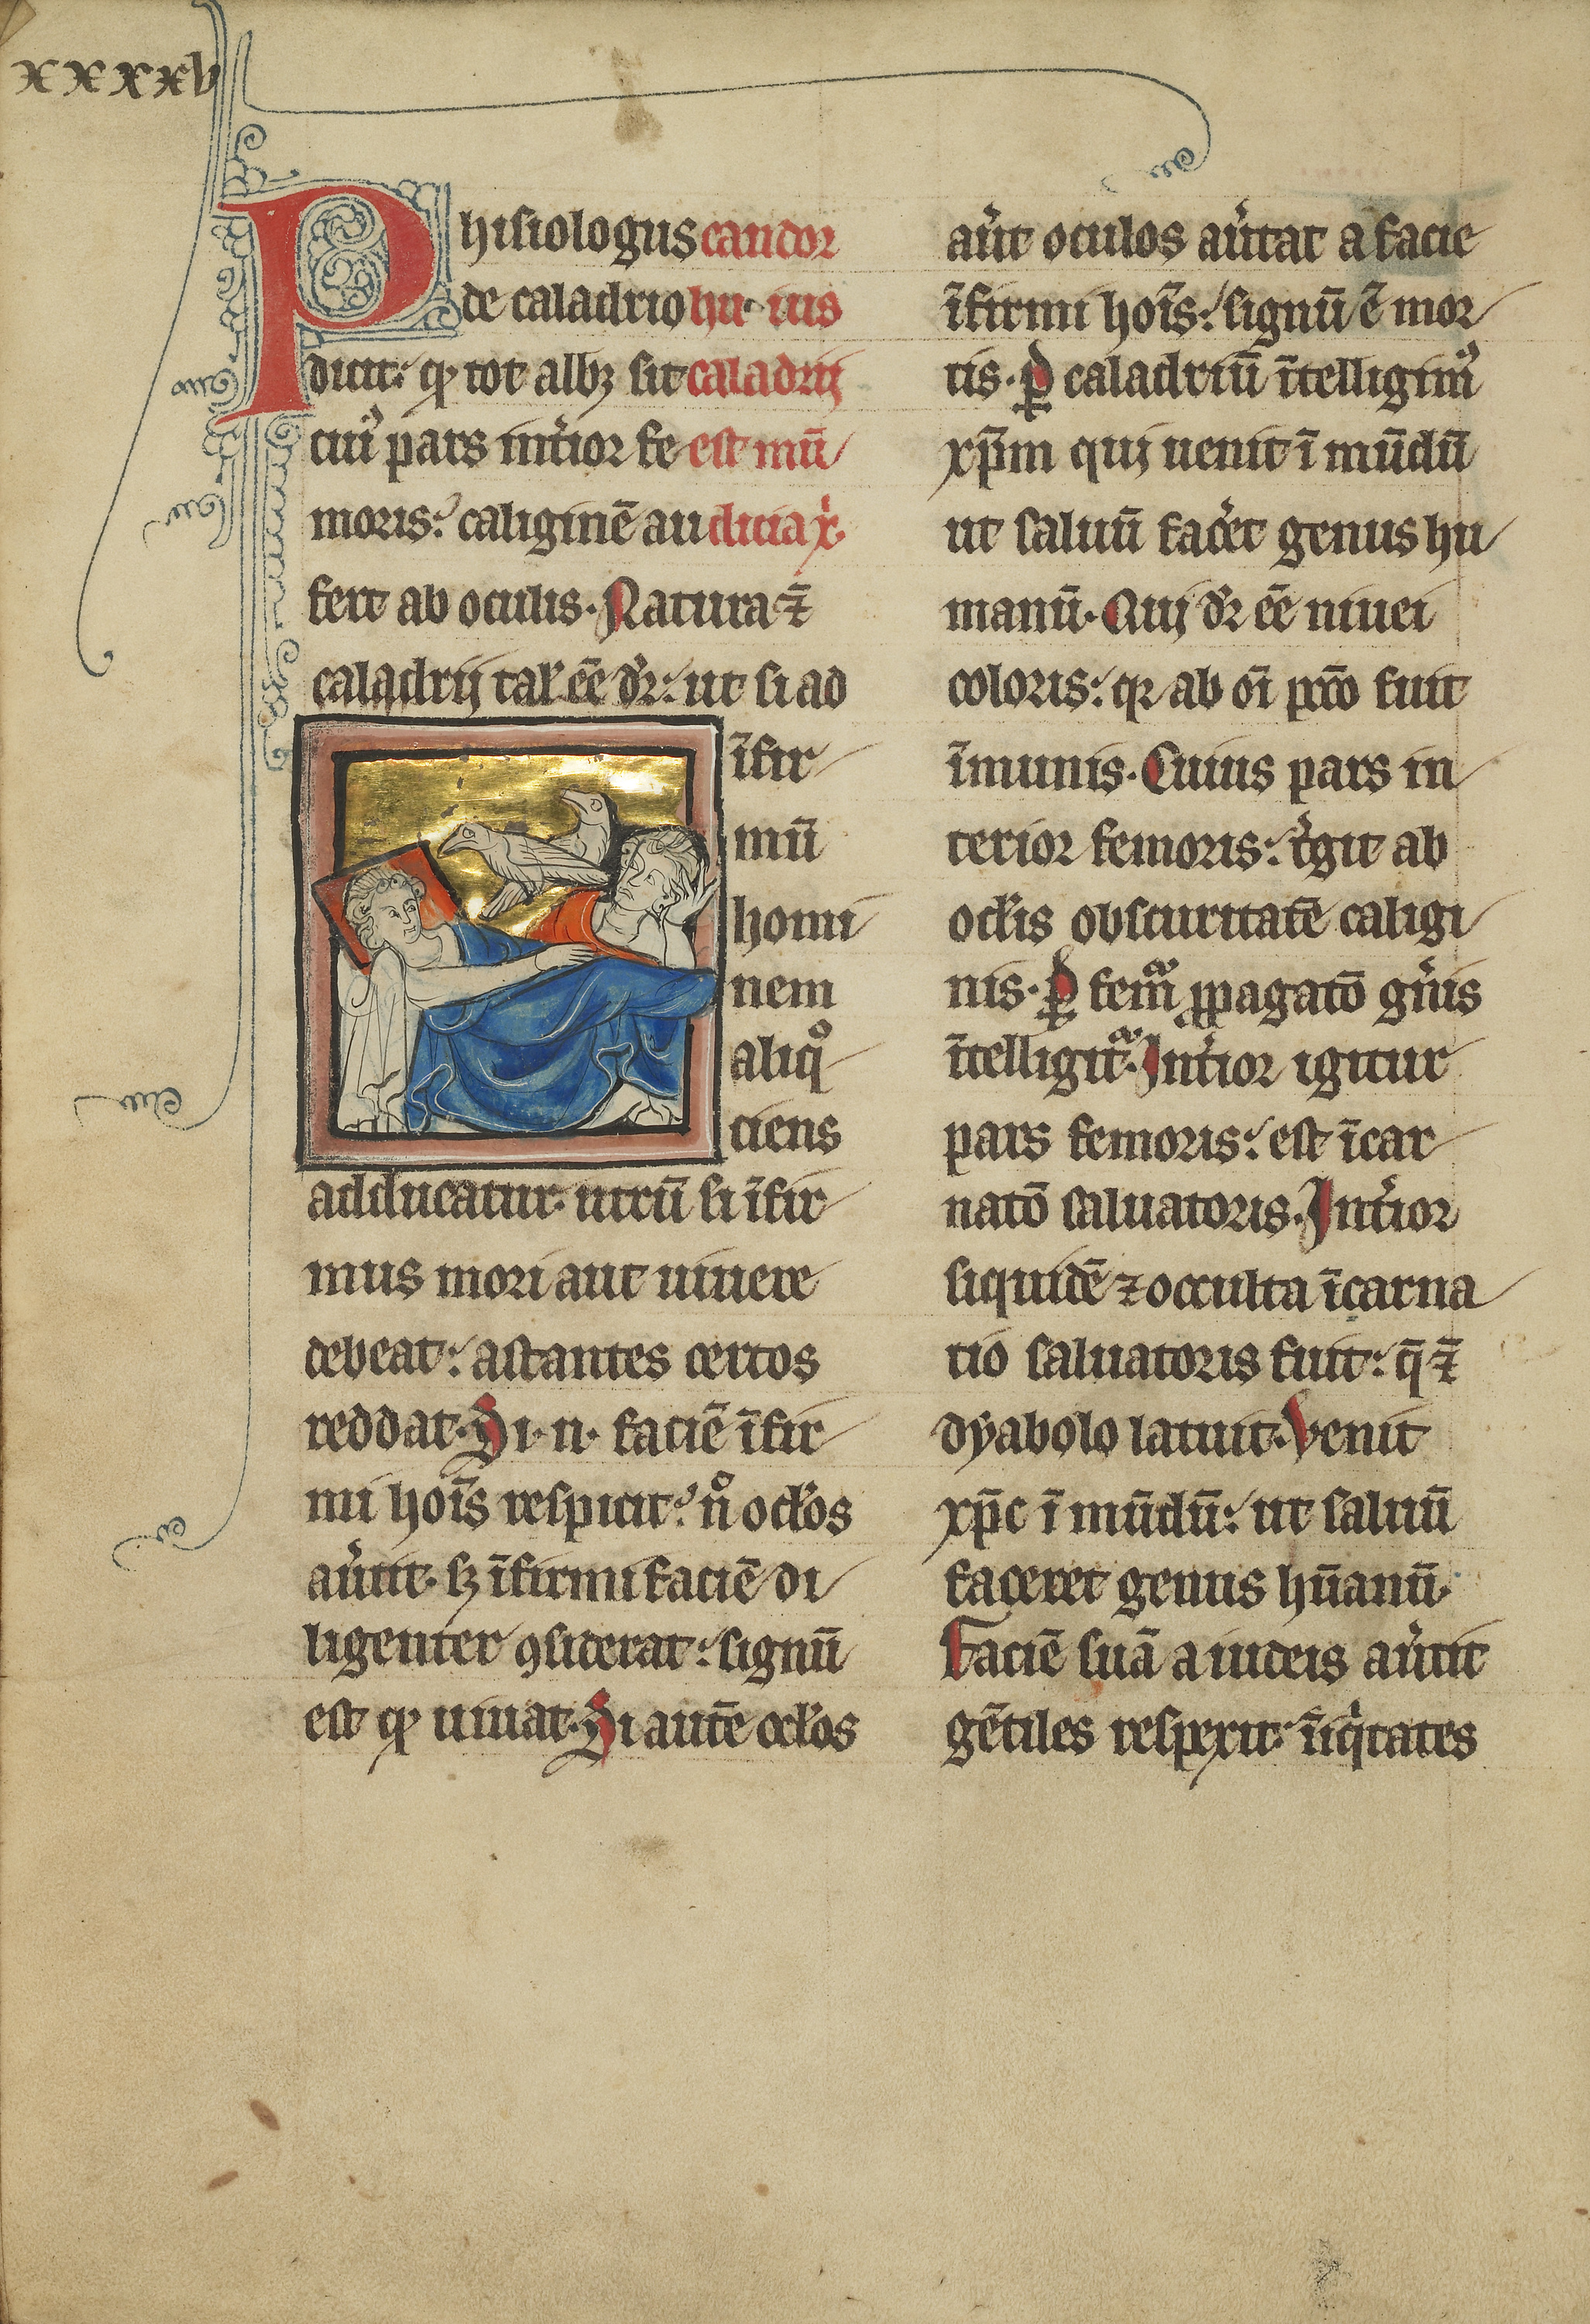 xxxxv
Phisiologus candor
de caladrio hu· ius
dicit: qͥ tot albꝫ sit caladrij
cuiꝰ pars inťior fe est mū
moris: caliginē au dicia x͛.
fert ab oculis. Natura ⁊̄
caladrij tal' eē dr̄: ut si ad
īfir
mū
homi
nem
aliqͦ
ciens
adducatur· utrū si īfir
mus mori aut uiuere
debeat: astantes certos
reddat. Si·n· faciē īfir
mi hoīs respicit: nͦ oclos
au͛tit· sꝫ īfirmi faciē di
ligenter ꝯsiderat: signū
est qͥ uiuat. Si autē oclos
au͛it oculos au͛tat a facie
īfirmi hoīs: signū ē mor
tis. ꝑ caladriū ītelligimꝰ
xp̄m qui uenit ī mūdū
ut saluū fac͛et genus hu
manū. Qui dr̄ eē niuei
coloris: qꝛ ab oī pctō fuit
īmunis. Cuius pars in
terior femoris: t͛git ab
oclis obscuritatē caligi
nis. ꝑ femᷓ ꝓpagatō gn͛is
ītelligitᷓ. Int͛ior igitur
pars femoris: est īcar
natō saluatoris. Int͛ior
siquidē ⁊ occulta īcarna
tio saluatoris fuit: q̄ ⁊̄
dyabolo latuit. Venit
xp̄c ī mūdū: ut saluū
faceret genus hūanū.
Faciē suā a iudeis au͛tit
gētiles respexit: īiqͥtates